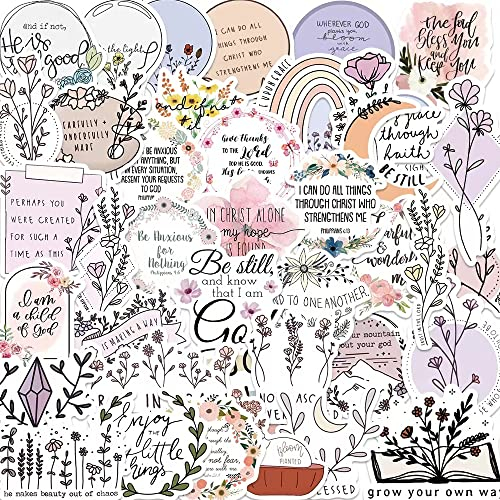 and if not,
He is
good
the light
I CAN DO ALL
THINGS THROUGH
CHRIST WHO
STRENGTHENS ME
WHEREVER GOD
plants you
bloom
with
grace
the Lord
Bless You
and
Keep You
CAREFULLY +
WONDERFULLY
MADE
UPON GRACE
grace
through
faith
BE STILL
BE ANXIOUS
ANYTHING, BUT
EVERY SITUATION,
PRESENT YOUR
REQUESTS
TO GOD
PHILIPPIANS 4:6
GIVE THANKS
TO THE Lord
FOR HE IS GOOD.
I CAN DO ALL THINGS
THROUGH CHRIST WHO
STRENGTHENS ME
PHILIPPIANS 4:13
PERHAPS YOU
WERE CREATED
FOR SUCH A
TIME AS THIS
Be Anxious
for
Nothing
Philippians 4:6
IN CHRIST ALONE
my hope
IS FOUND
Be still
and know
that I am
God
wonderf
I am
a child
of God
TO ONE ANOTHER.
IS MAKING A WAY
your mountain
out your god
Enjoy
the
little
things
though
through the
valley,
not fear,
are with me
bloom
PLANTED
ESSED
he makes beauty out of chaos
row your own wa